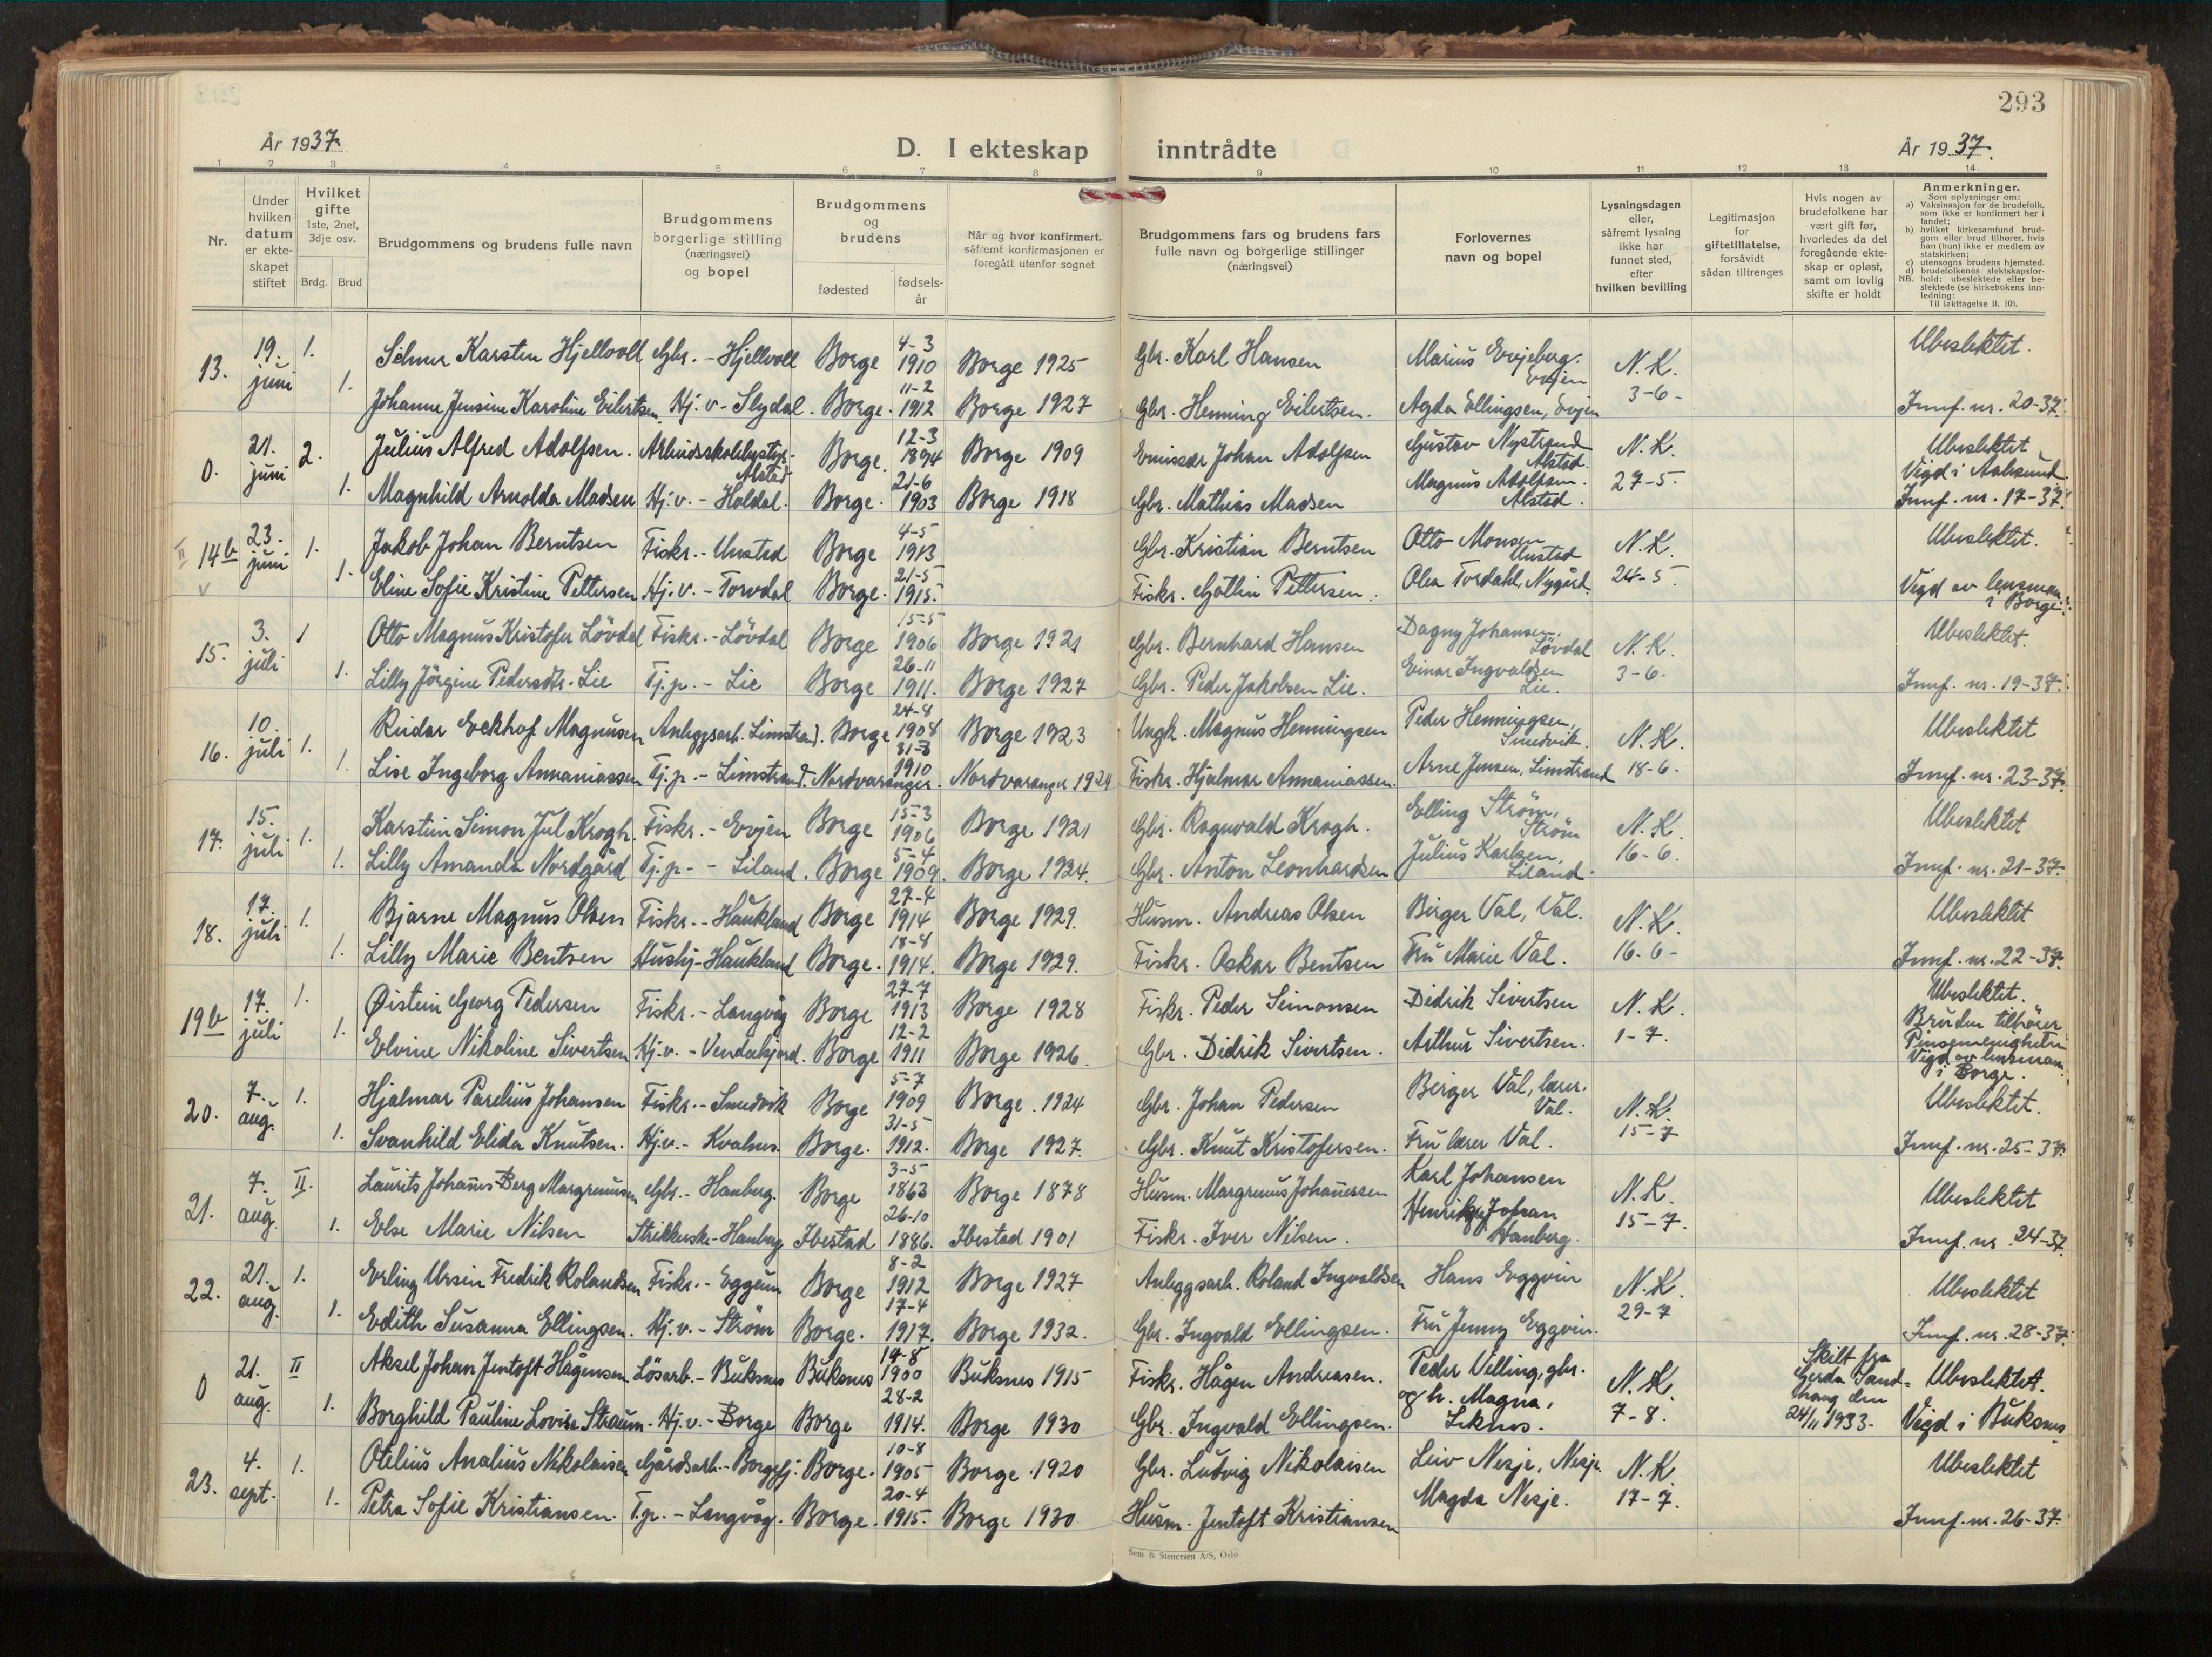 293
År 1937.
D. I ekteskap inntrådte
År 1937.
1 2 3 4 5 6 7 8 9 10 11 12 13 14
Nr.
Under hvilken datum er ekte- skapet stiftet
Hvilket gifte 1ste, 2net, 3dje osv.
Brdg. Brud
Brudgommens og brudens fulle navn
Brudgommens borgerlige stilling (næringsvei) og bopel
Brudgommens og brudens
fødested
fødsels- år
Når og hvor konfirmert, såfremt konfirmasjonen er foregått utenfor sognet
Brudgommens fars og brudens fars fulle navn og borgerlige stillinger (næringsvei)
Forlovernes navn og bopel
Lysningsdagen eller, såfremt lysning ikke har funnet sted, efter hvilken bevilling
Legitimasjon for giftetillatelse, forsåvidt sådan tiltrenges
Hvis nogen av brudefolkene har vært gift før, hvorledes da det foregående ekte- skap er opløst, samt om lovlig skifte er holdt
Anmerkninger.
Som oplysninger om:
a) Vaksinasjon for de brudefolk, som ikke er konfirmert her i landet;
b) hvilket kirkesamfund brud- gom eller brud tilhører, hvis han (hun) ikke er medlem av statskirken;
c) utensogns brudens hjemsted.
d) brudefolkenes slektskapsfor- hold: ubeslektede eller be- slektede (se kirkebokens inn- ledning:
NB.
Til iakttagelse II. 10).
13. 19. juni 1. Selmer Karsten Hjellvoll Gbr. - Hjellvoll Borge 4-3 1910 Borge 1925 Gbr. Karl Hansen Marius Evjeberg. Evjen N.K. 3-6- Ubeslektet.
1. Johanne Jensine Karoline Eilertsen Hj.v. - Slydal. Borge. 11-2 1912 Borge 1927 Gbr. Henning Eilertsen. Agda Ellingsen, Evjen Innf. nr. 20-37.
0. 21. juni 2. Julius Alfred Adolfsen. Arbeidsskolebestyr. Alstad Borge. 12-3 1894 Borge 1909 Emissær Johan Adolfsen Gustav Nystrand Alstad. N.K. 27-5. Ubeslektet
1. Magnhild Arnolda Madsen Hj.v. - Holdal. Borge. 21-6 1903 Borge 1918 Gbr. Mathias Madsen Magnus Adolfsen. Alstad. Vigd i Aalesund Innf. nr. 17-37.
14b 23. juni 1. Jakob Johan Berntsen Fiskr. - Unstad Borge 4-5 1913 Gbr. Kristian Berntsen Otto Monsen Unstad N.K. 24-5. Ubeslektet.
1. Eline Sofie Kristine Pettersen Hj.v. - Torvdal Borge. 21-5 1915. Fiskr. Gottlin Pettersen. Olea Tordahl, Nygård. Vigd av lensman i Borge.
15. 3. juli 1 Otto Magnus Kristofer Lövdal Fiskr. - Lövdal Borge 15-5 1906 Borge 1921 Gbr. Bernhard Hansen Dagny Johansen. Lövdal N.K. 3-6. Ubeslektet.
1. Lilly Jörgine Pedersdtr. Lie Tj.p. - Lie Borge 26-11 1911. Borge 1927 Gbr. Peder Jakobsen Lie. Einar Ingvaldsen Lie. Innf. nr. 19-37.
16. 10. juli 1. Reidar Eckhof Magnusen Anleggsarb. Limstrand. Borge 24-8 1908 Borge 1923 Ungk. Magnus Henningsen Peder Henningsen, Smedvik. N.K. 18-6. Ubeslektet
1. Lise Ingeborg Annaniassen Tj.p. - Limstrand. Nordvaranger. 31-8 1910 Nordvaranger 1924 Fiskr. Hjalmar Annaniassen. Arne Jensen, Limstrand Innf. nr. 23-37.
17. 15. juli 1. Karstein Simon Jul Krogh. Fiskr. - Evjen Borge 15-3 1906 Borge 1921 Gbr. Ragnvald Krogh. Elling Ström, Ström N.K. 16-6. Ubeslektet
1. Lilly Amanda Nordgård Tj.p. - Liland. Borge 5-4 1909. Borge 1924. Gbr. Anton Leonhardsen Julius Karlsen, Liland. Innf. nr. 21-37.
18. 17. juli 1. Bjarne Magnus Olsen Fiskr. - Haukland Borge 27-4 1914 Borge 1929. Husm. Andreas Olsen Birger Val, Val. N.K. 16-6- Ubeslektet
1. Lilly Marie Bentsen Hushj. - Haukland Borge. 18-8 1914. Borge 1929. Fiskr. Oskar Bentsen Fru Marie Val. Innf. nr. 22-37.
19b 17. juli 1. Øistein Georg Pedersen Fiskr. - Langvåg Borge 27-7 1913 Borge 1928 Fiskr. Peder Simonsen Didrik Sivertsen N.K. 1-7. Ubeslektet.
1. Elvine Nikoline Sivertsen Hj.v. - Vendalsjord. Borge 12-2 1911 Borge 1926. Gbr. Didrik Sivertsen. Arthur Sivertsen. Bruden tilhører Pinsemenigheten Vigd av lensman i Borge.
20. 7. aug. 1. Hjalmar Parelius Johansen Fiskr. - Smedvik Borge 5-7 1909 Borge. 1924 Gbr. Johan Pedersen Birger Val, lærer. Val. N.K. 15-7 Ubeslektet.
1. Svanhild Elida Knutsen. Hj.v. - Kvalnes. Borge. 31-5 1912. Borge 1927. Gbr. Knut Kristofersen. Fru lærer Val. Innf. nr. 25-37.
21. 7. aug. II. Laurits Johannes Berg Margrenusen Gbr. - Hanberg. Borge 3-5 1863 Borge 1878 Husm. Margrenus Johannessen Karl Johansen N.K. 15-7. Ubeslektet
1. Else Marie Nilsen Strikkerske - Hanberg Ibestad 26-10 1886. Ibestad 1901 Fiskr. Iver Nilsen. Henrik Johan Hanberg. Innf. nr. 24-37
22. 21. aug. 1. Erling Ursin Fredrik Rolandsen Fiskr. - Eggum Borge 8-2 1912 Borge 1927 Anleggsarb. Roland Ingvaldsen Hans Eggvin N.K. 29-7 Ubeslektet
1. Edith Susanna Ellingsen. Hj.v. - Ström Borge. 17-4 1917. Borge 1932. Gbr. Ingvald Ellingsen. Fru Jenny Eggvin. Innf. nr. 28-37.
0 21. aug. II Aksel Johan Jentoft Hågensen Lösarb. - Buksnes Buksnes 14-8 1900 Buksnes 1915 Fiskr. Hågen Andreasen. Peder Villing, gbr. N.K. 7-8. Skilt fra Gerda Sand- haug den 24/11 1933. Ubeslektet.
1. Borghild Pauline Lovise Straum. Hj.v. - Borge Borge 28-2 1914. Borge 1930 Gbr. Ingvald Ellingsen. og h. Magna, Leknes. Vigd i Buksnes
23. 4. sept. 1. Otelius Analius Nikolaisen Gårdsarb. - Borgefj. Borge. 10-8 1905 Borge 1920 Gbr. Ludvig Nikolaisen Leiv Nesje, Nesje N.K. 17-7. Ubeslektet
1. Petra Sofie Kristiansen. T.p. - Langvåg. Borge. 20-4 1915. Borge 1930 Husm. Jentoft Kristiansen Magda Nesje. Innf. nr. 26-37.
Sem & Stenersen A/S, Oslo